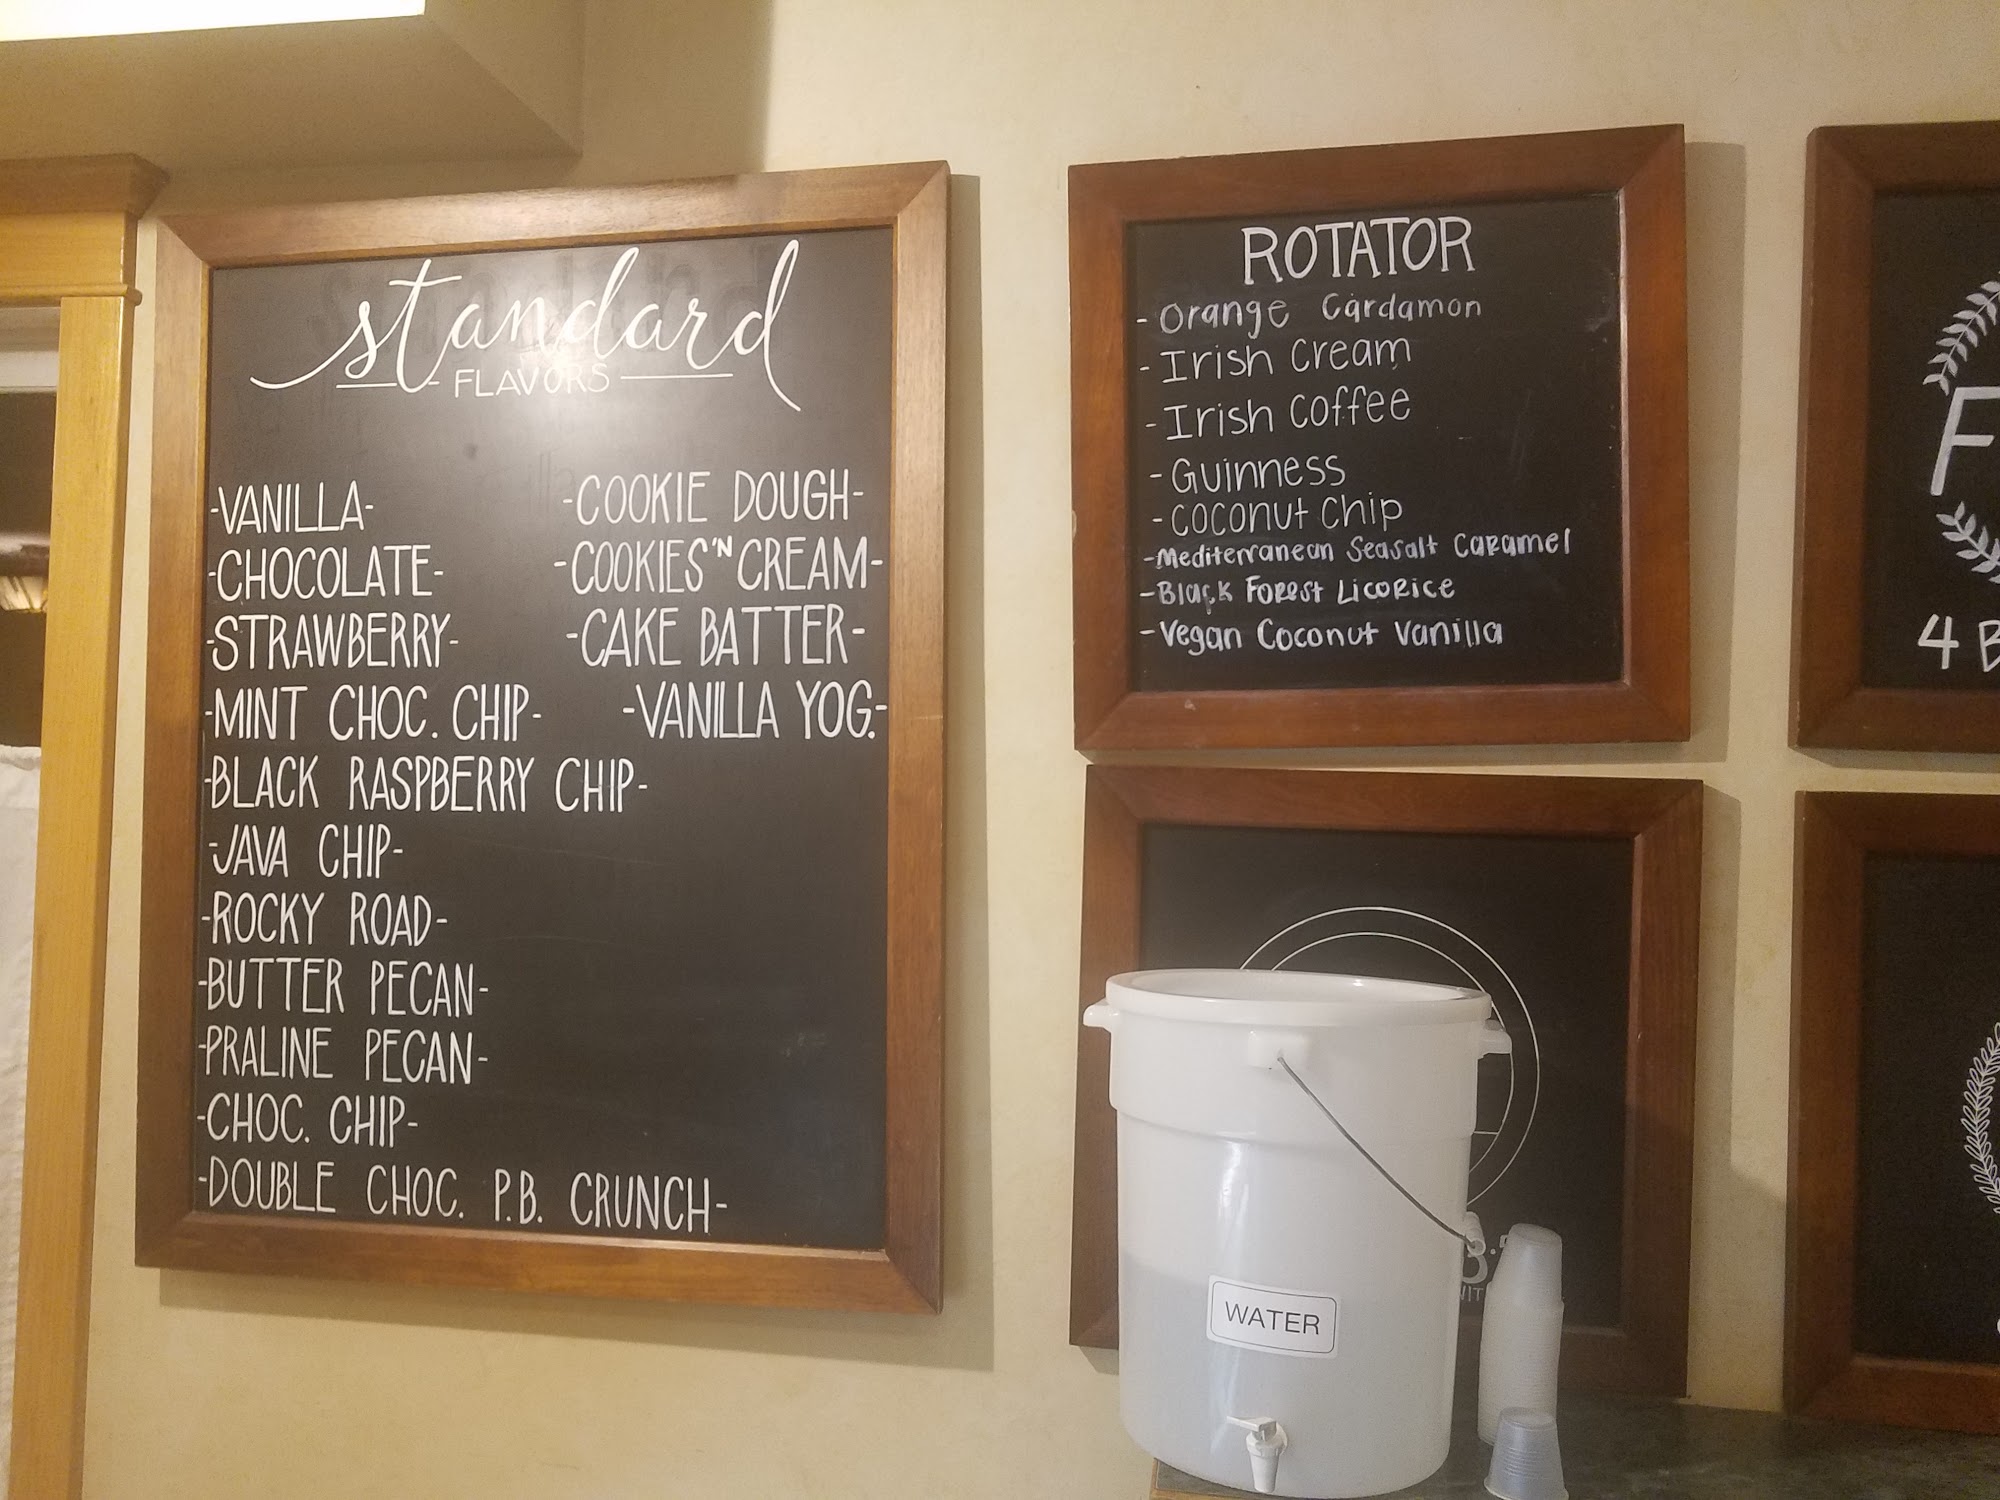 standard
FLAVORS
-VANILLA-
-CHOCOLATE-
-STRAWBERRY-
-MINT CHOC. CHIP-
-BLACK RASPBERRY CHIP-
-JAVA CHIP-
-ROCKY ROAD-
-BUTTER PECAN-
-PRALINE PECAN-
-CHOC. CHIP-
-DOUBLE CHOC. P.B. CRUNCH-
-COOKIE DOUGH-
-COOKIES'N CREAM-
-CAKE BATTER-
-VANILLA YOG.-
ROTATOR
- Orange Cardamon
- Irish Cream
- Irish Coffee
- Guinness
- Coconut Chip
- Mediterranean Seasalt Caramel
- Black Forest Licorice
- Vegan Coconut Vanilla
WATER
F
4 B